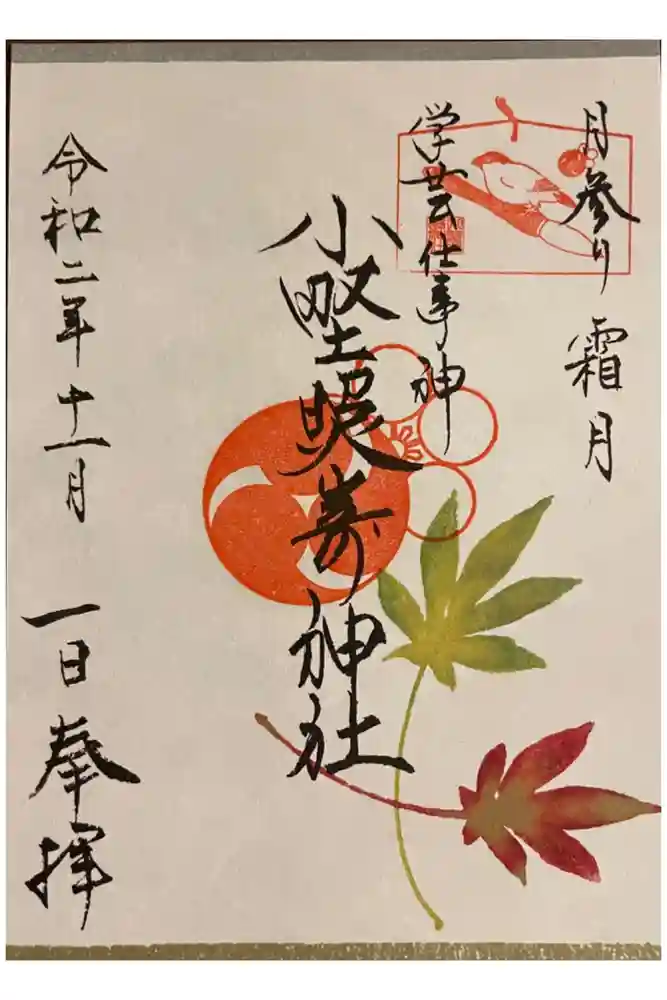 月参り 霜月
学芸仕事神
小野照崎神社
令和二年十一月一日奉拝